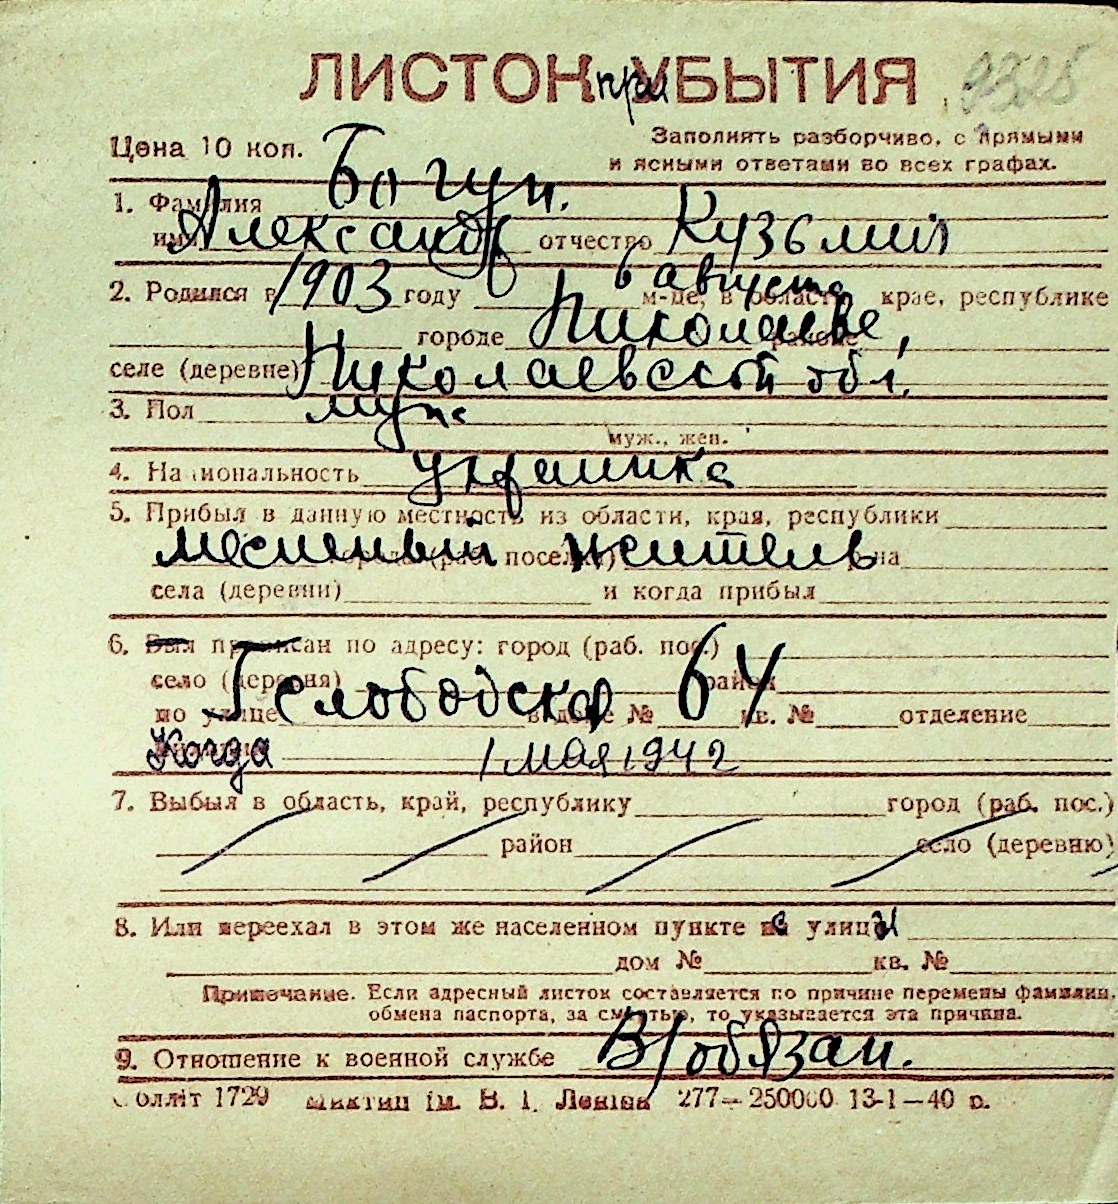 ЛИСТОК при УБЫТИЯ
Цена 10 коп.
Заполнять разборчиво, с прямыми
и ясными ответами во всех графах.
1. Фамилия Богун.
имя Александр отчество Кузьмич
2. Родился в 1903 году 6 августа м-це, в области, крае, республике
городе Николаеве, районе
селе (деревне) Николаевской обл.
3. Пол муж
муж., жен.
4. Национальность украинка
5. Прибыл в данную местность из области, края, республики
местный житель города (раб. поселка) р-на
села (деревни) и когда прибыл
6. Был прописан по адресу: город (раб. пос.)
село (деревня) район
по улице Слободская в доме № 64 кв. № отделение
Когда 1 мая 1942
7. Выбыл в область, край, республику город (раб. пос.)
район село (деревню)
8. Или переехал в этом же населенном пункте с улицы
дом № кв. №
Примечание. Если адресный листок составляется по причине перемены фамилии,
обмена паспорта, за смертью, то указывается эта причина.
9. Отношение к военной службе В/обязан.
оллiт 1729 iм. В. I. Ленiна 277—250000 13-1—40 р.